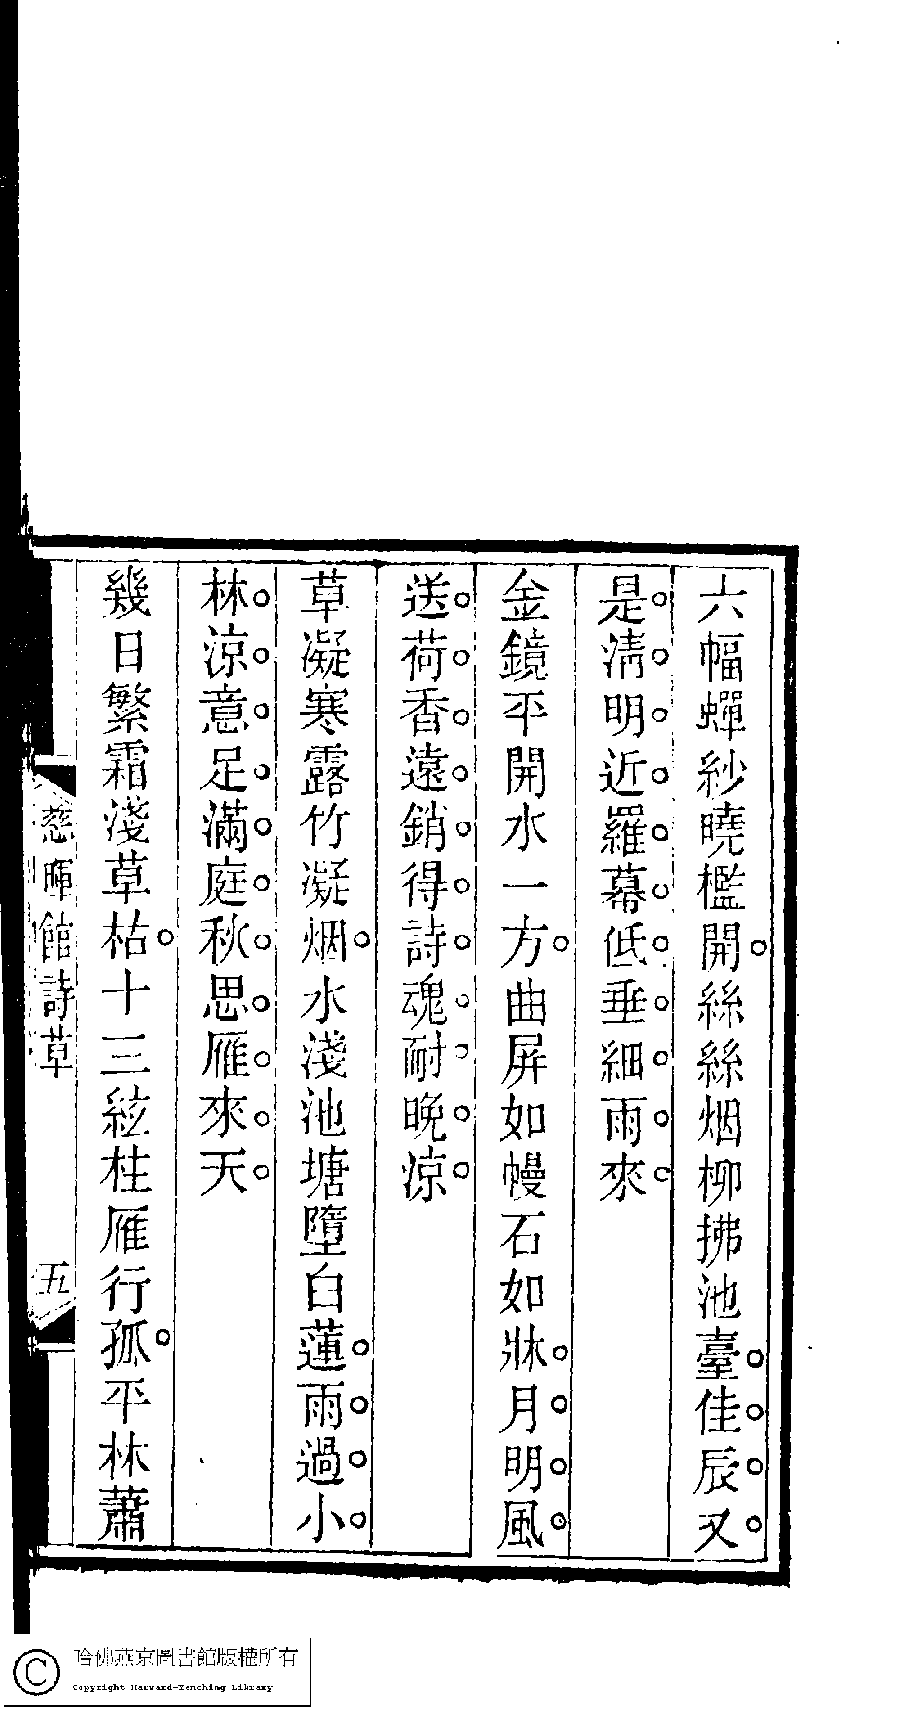 六幅蟬紗曉檻開。絲絲烟柳拂池臺。佳。辰。又。
是。淸。明。近。羅。幕。低。垂。細。雨。來。
金鏡平開水一方。曲屏如幔石如牀。月。明。風。
送。荷。香。遠。銷。得。詩。魂。耐。晚。涼。
草凝寒露竹凝烟。水淺池塘墮白蓮。雨。過。小。
林。涼。意。足。滿。庭。秋。思。雁。來。天。
幾日繁霜淺草枯。十三絃柱雁行孤。平林蕭
慈暉館詩草
五
哈佛燕京圖書館版權所有
Copyright Harvard-Yenching Library